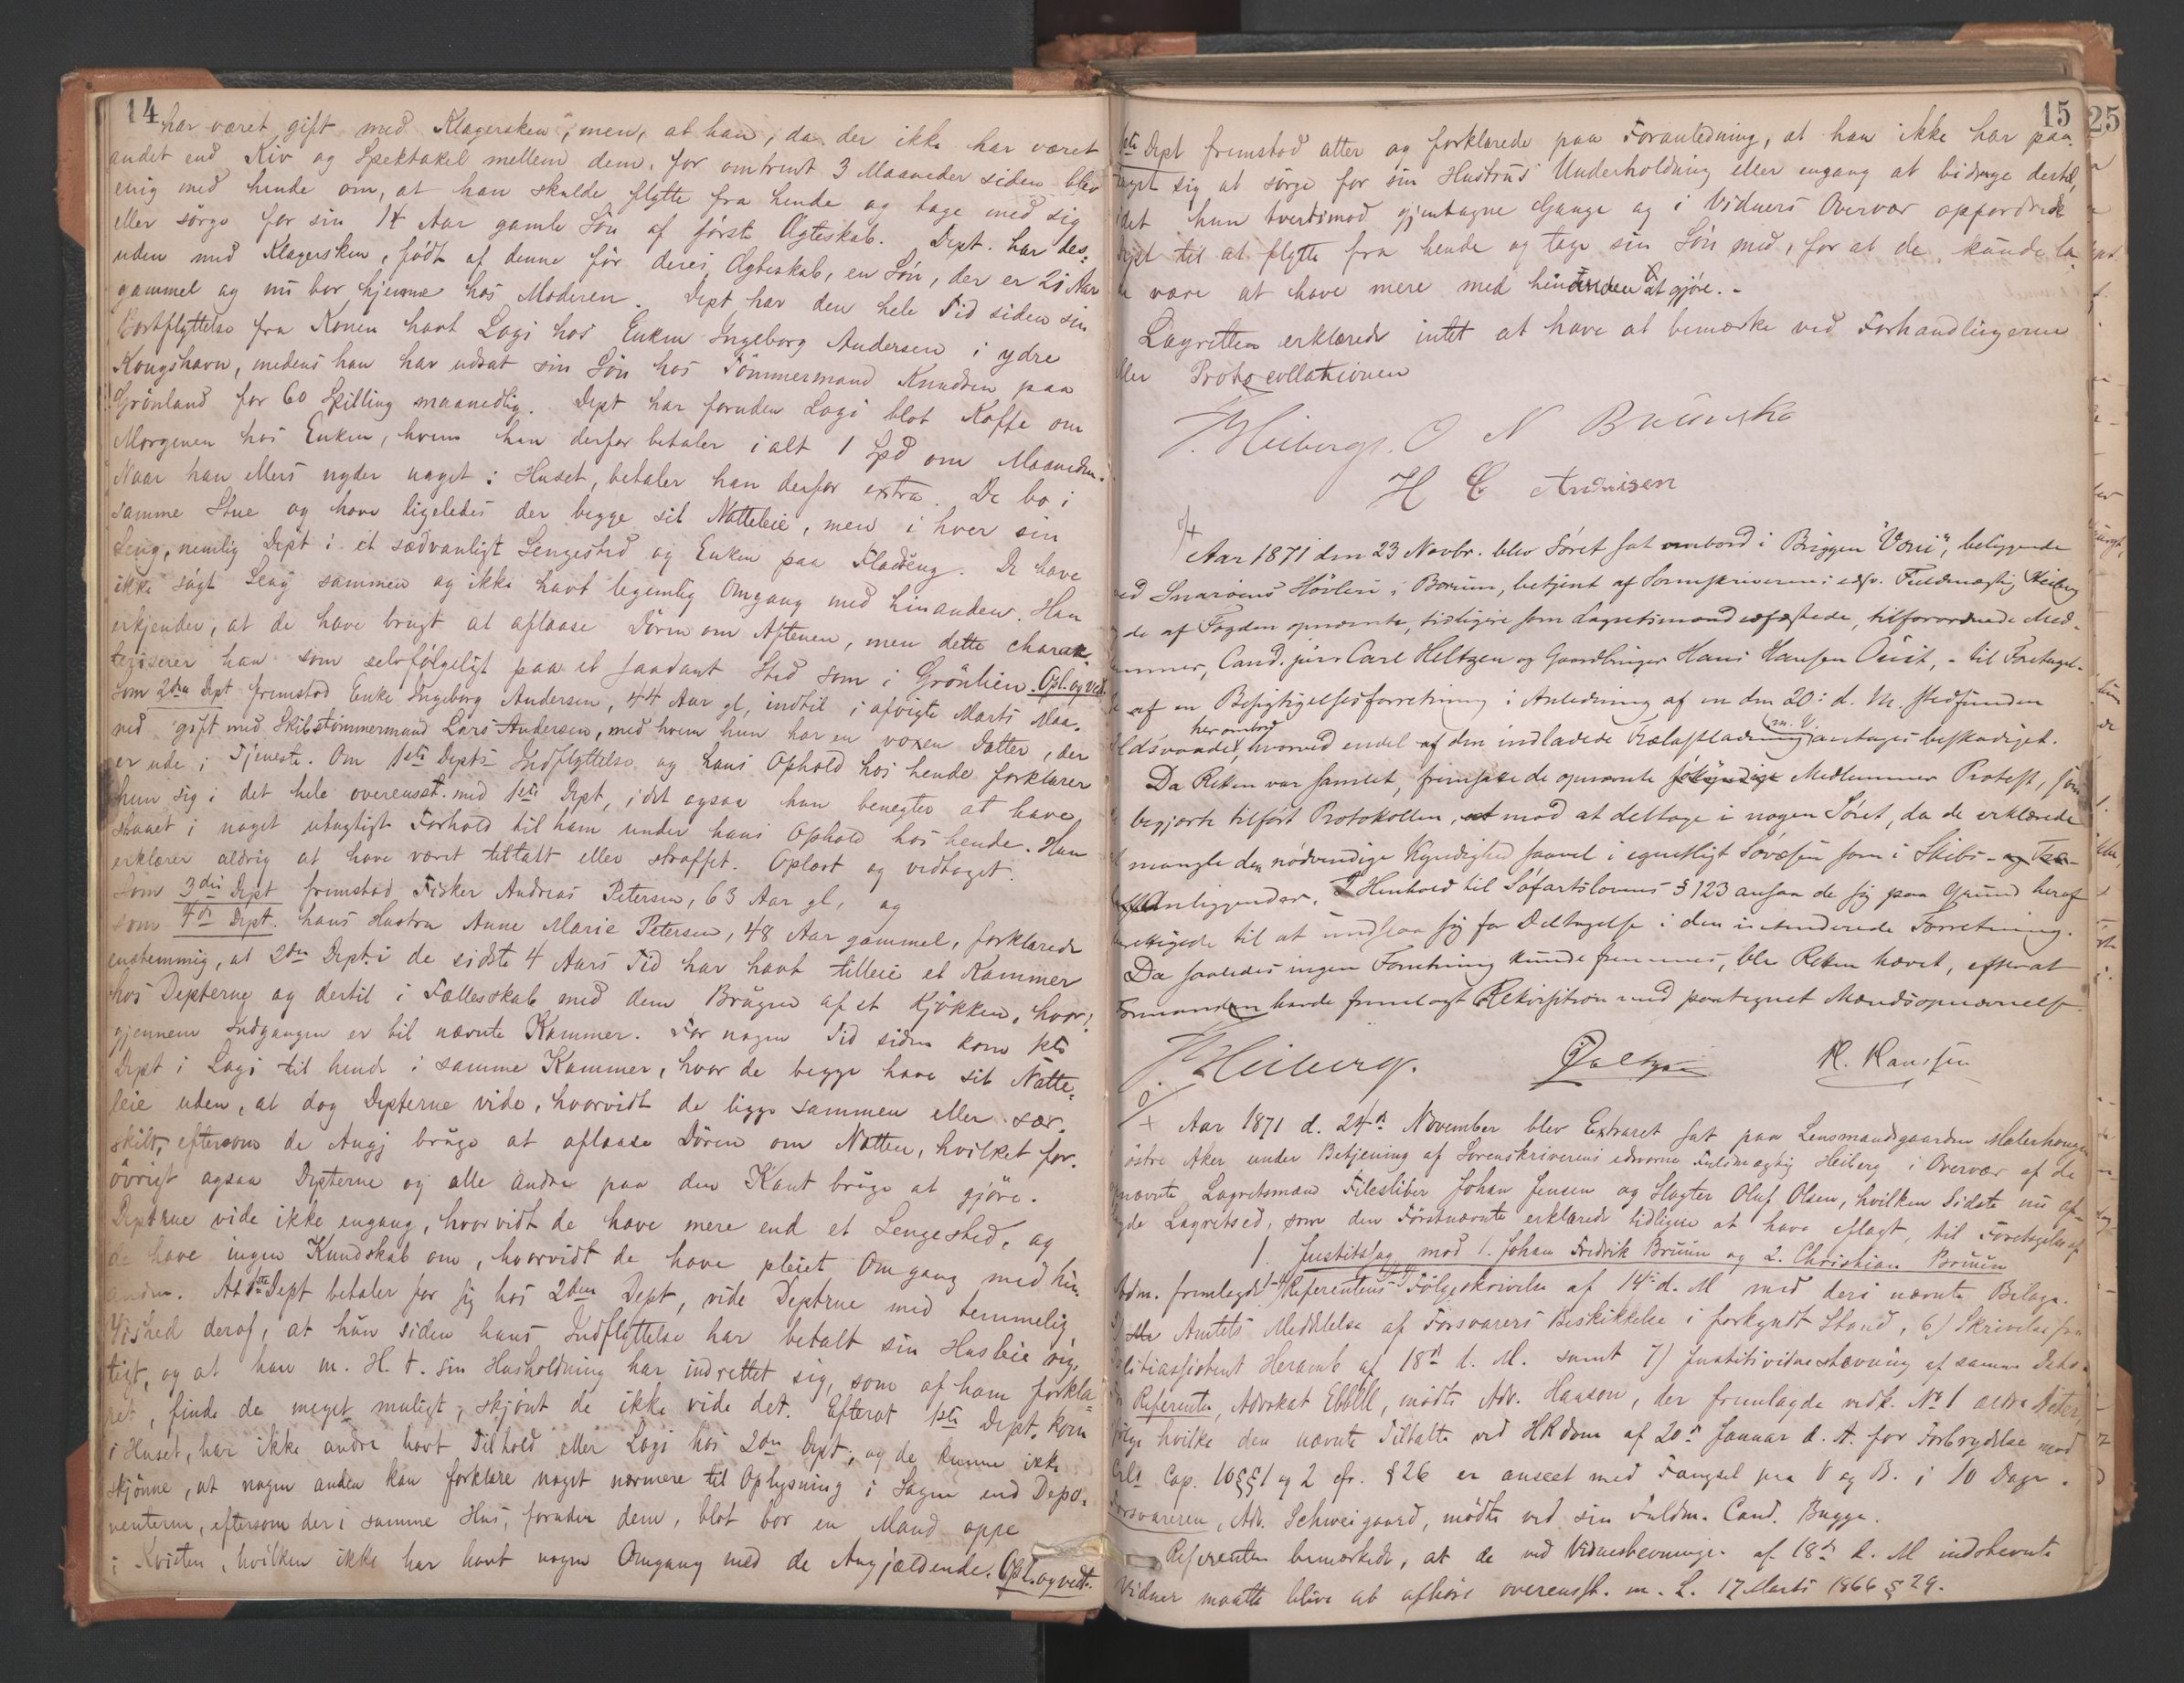 14
har været gift med Klagersken", men, at han, da der ikke har været
andet end Kiv og Spektakel mellem dem, for omtrent 3 Maaneder siden blev
enig med hende om, at han skulde flytte fra hende og tage med sig
eller sörge for sin 14 Aar gamle Sön af förste Ægteskab. Dept. har des-
uden med Klagersken, födt af denne för deres Ægteskab, en Sön, der er 21 Aar
gammel og nu bor hjemme hos Moderen. Dept har den hele Tid siden sin
Bortflyttelse fra Konen havt Logi hos Enken Ingeborg Andersen i ydre
Kongshavn, medens han har udsat sin Sön hos Tömmermand Knudsen paa
Grönland for 60 Skilling maanedlig. Dept har foruden Logi blot Kaffe om
Morgenen hos Enken, hvem han derfor betaler ialt 1 Spd om Maaneden.
Naar han ellers nyder noget i Huset, betaler han derfor extra. De bo i
samme Stue og have ligeledes der begge sit Natteleie, men i hver sin
Seng, nemlig Dept i et sædvanligt Sengested og Enken paa Fladseng. De have
ikke sögt Seng sammen og ikke havt legemlig Omgang med hinanden. Han
erkjender, at de have brugt at aflaase Dören om Aftenen, men dette charak-
teriserer han som selvfölgeligt paa et saadant Sted som i Grönlien. Opl. og ved.
Som 2den Dept fremstod Enke Ingeborg Andersen, 44 Aar gl, indtil i afvigte Marts Maa-
ned gift med Skibstömmermand Lars Andersen, med hvem hun har en voxen Datter, der
er ude i Tjeneste. Om 1ste Depts Indflyttelse og hans Ophold hos hende forklarer
hun sig i det hele overensst. med 1ste Dept, idet ogsaa hun benegter at have
staaet i noget utugtigt Forhold til ham under hans Ophold hos hende. Hun
erklærer aldrig at have været tiltalt eller straffet. Oplæst og vedtaget.
Som 3die Dept fremstod Fisker Andreas Petersen, 63 Aar gl, og
som 4de Dept. hans Hustru Anne Marie Petersen, 48 Aar gammel, forklarede
enstemmig, at 2den Dept. i de sidste 4 Aars Tid har havt tilleie et Kammer
hos Depterne og dertil i Fællesskab med dem Brugen af et Kjökken, hvor-
gjennem Indgangen er til nævnte Kammer. For nogen Tid siden kom 1ste
Dept i Logi til hende i samme Kammer, hvor de begge have sit Natte-
leie uden, at dog Depterne vide, hvorvidt de ligge sammen eller sær-
skilt, eftersom de Angj bruge at aflaase Dören om Natten, hvilket for-
övrigt ogsaa Depterne og alle Andre paa den Kant bruge at gjöre.
Depterne vide ikke engang, hvorvidt de have mere end et Sengested, og
de have ingen Kundskab om, hvorvidt de have pleiet Omgang med hin-
anden. At 1ste Dept betaler for sig hos 2den Dept, vide Depterne med temmelig
Vished deraf, at hun siden hans Indflyttelse har betalt sin Husleie rig-
tigt, og at han m. H. t. sin Husholdning har indrettet sig, som af ham forkla-
ret, finde de meget muligt, skjönt de ikke vide det. Efterat 1ste Dept. kom
i Huset, har ikke andre havt Tilhold eller Logi hos 2den Dept, og de kunne ikke
skjönne, at nogen anden kan forklare noget nærmere til Oplysning i Sagen end Depo-
nenterne, eftersom der i samme Hus, foruden dem, blot bor en Mand oppe
i Kvisten, hvilken ikke har havt nogen Omgang med de Angjældende. Opl. og vedt.
15
1ste Dept fremstod atter og forklarede paa Foranledning, at han ikke har paa-
taget sig at sörge for sin Hustrus Underholdning eller engang at bidrage dertil,
idet hun tvertimod gjentagne Gange og i Vidners Overvær opfordrede
Dept til at flytte fra hende og tage sin Sön med, for at de kunde la-
e være at have mere med hinanden at gjöre. -
Lagretten erklærede intet at have at bemærke ved Forhandlingerne
eller Protocollationen
J. Heiberg. O N Bruunsko
H C Andrisen
Aar 1871 den 23 Novbr. blev Söret sat ombord i Briggen "Voni", beliggende
ved Snaröens Hövleri i Bærum, betjent af Sorenskriverens edsv. Fuldmægtig Heiberg
og de af Fogden opnævnte, tidligere som Lagretsmænd edfæstede, tilforordnede Med-
lemmer, Cand. jur. Carl Heltzen og Gaardbruger Hans Hansen Öust, - til Foretagel-
se af en Besigtigelsesforretning i Anledning af en den 20: d. M. stedfunden
Ildsvaade her ombord, hvorved endel af den indladede Trælastladning m. V. antages beskadiget.
Da Retten var samlet, fremsatte de opnævnte sökyndige Medlemmer Protest, som
begjærtes tilfört Protokollen, mod at deltage i nogen Söret, da de erklærede
at mangle den nödvendige Kyndighed saavel i egentligt Sövæsen som i Skibs-
Anliggender. I Henhold til Söfartslovens § 123 ansaa de sig paa Grund heraf
berettigede til at undslaa sig for Deltagelse i den intenderede Forretning.
Da saaledes ingen Forretning kunde fremmes, blev Retten hævet, efterat
Formanden havde fremlagt Rekvisition med paategnet Mændsopnævnelse.
J Heiberg. H. Hanssen
Aar 1871 d. 24de November blev Extraret sat paa Lensmandsgaarden Malerhaugen
i östre Aker under Betjening af Sorenskriverens edsvorne Fuldmægtig Heiberg i Overvær af de
opnævnte Lagretsmænd Filesliber Johan Jensen og Slagter Oluf Olsen, hvilken Sidste nu af-
lagde Lagretsed, som den Förstnævnte erklærede tidligere at have aflagt, til Foretagelse af
1. Justitssag mod 1. Johan Fredrik Bruun og 2. Christian Bruun
Adm. fremlagde Referentens Fölgeskrivelse af 14de d. M med deri nævnte Bilage.
5) Amtets Meddelelse af Forsvarers Beskikkelse i forkyndt Stand, 6) Skrivelse fra
Politiassistent Heramb af 18de d. M. samt 7) Justitsvidnestævning af samme Dato.
For Referenten, Advokat Ebbell, mödte Adv. Hanson, der fremlagde vedk. No 1 ældre Akter,
ifölge hvilke den nævnte Tiltalte ved HRdom af 20de Januar d. A. for Forbrydelse mod
Crl Cap. 10 §§ 1 og 2 cfr. § 26 er anseet med Fængsel paa V og B. i 10 Dage.
Forsvareren, Adv. Schweigaard, mödte ved sin Fuldm. Cand. Bugge.
Referenten bemærkede, at de ved Vidnestevningen af 18de d. M indstevnte
Vidner maatte blive at afhöre overensst. m. L. 17 Marts 1866 § 29.
25